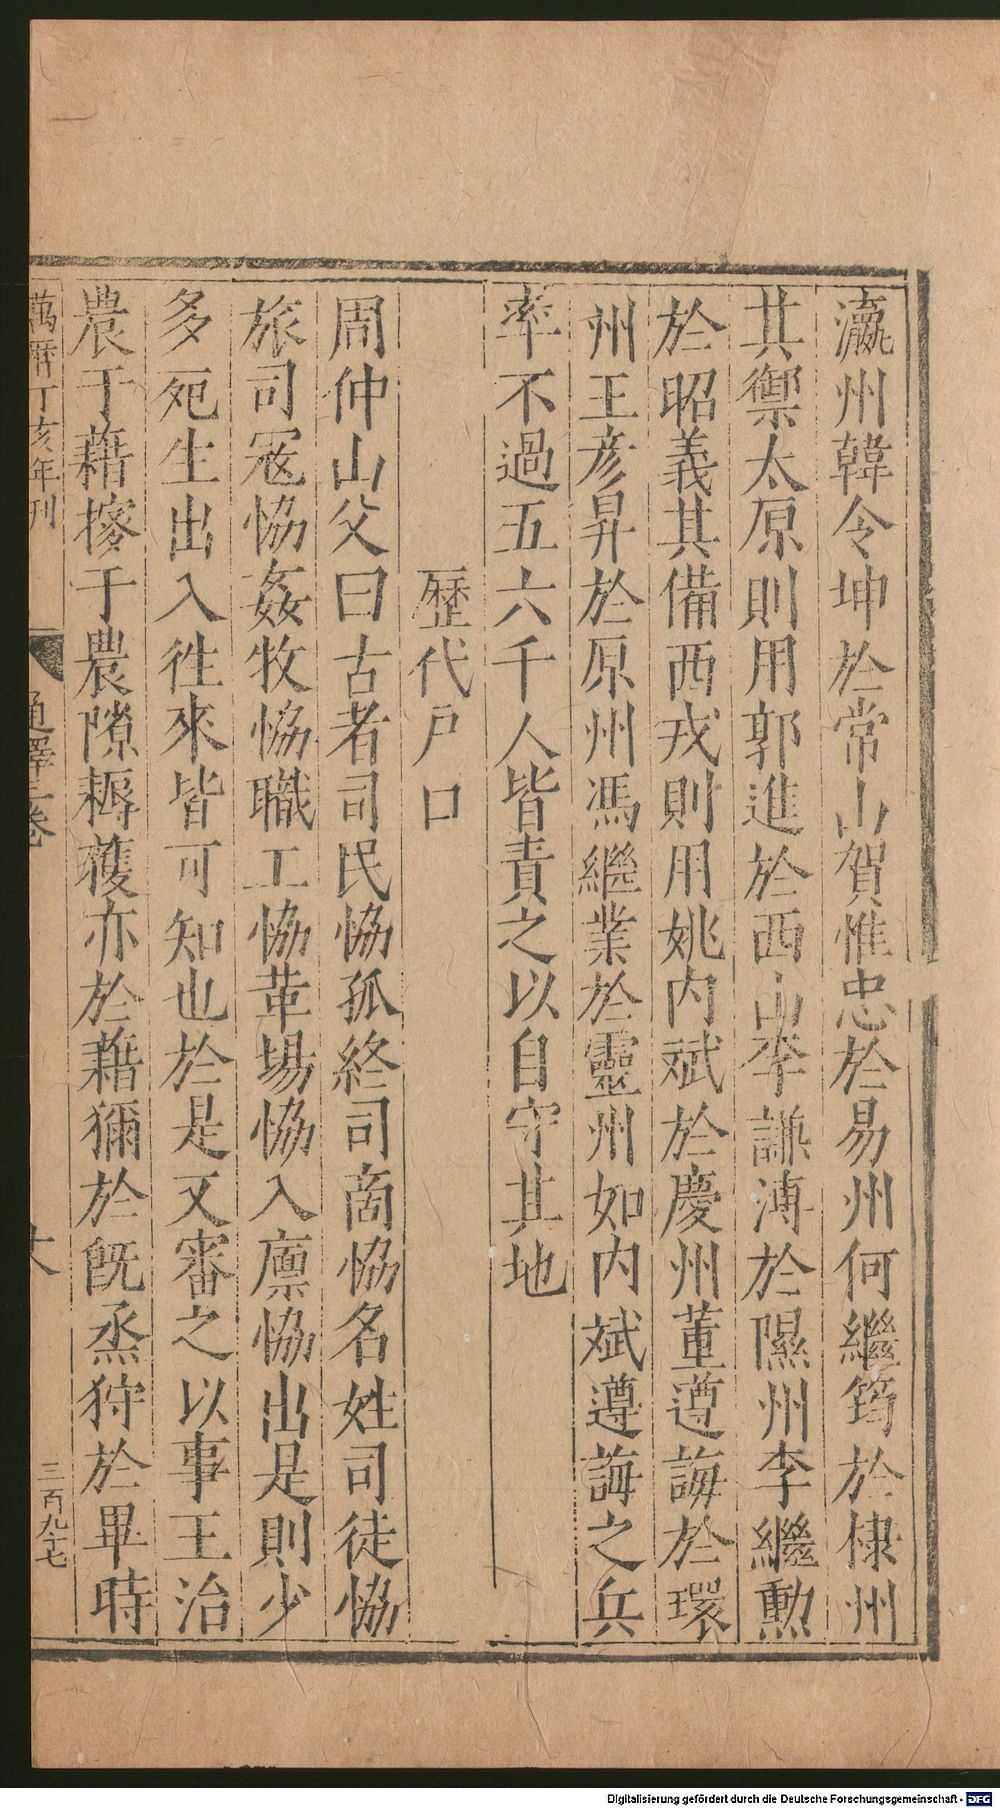 瀛州韓令坤於常山賀惟忠於易州何繼筠於棣州
其禦太原則用郭進於西山李謙溥於隰州李繼勳
於昭義其備西戎則用姚內斌於慶州董遵誨於環
州王彥昇於原州馮繼業於靈州如內斌遵誨之兵
率不過五六千人皆責之以自守其地
歷代戶口
周仲山父曰古者司民協孤終司商協名姓司徒協
旅司寇協姦牧協職工協革場協入廩協出是則少
多死生出入徃來皆可知也於是又審之以事王治
農于藉搜于農隙耨穫亦於藉獮於旣烝狩於畢時
萬曆丁亥年刊
卷
三百九十七
Digitalisierung gefördert durch die Deutsche Forschungsgemeinschaft - DFG